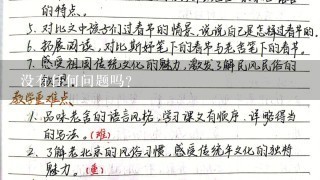 的特点。
5. 对比文中孩子们过春节的情景,说说自己是怎样过春节的。
6. 拓展阅读,对比斯妤笔下的春节与老舍笔下的春节。
7. 感受祖国传统文化的魅力,激发了解民风民俗的
没有任何问题吗?
教学重难点
1. 品味老舍的语言风格,学习课文有顺序、详略得当
的写法。(难)
2. 了解老北京的风俗习惯,感受传统年文化的独特
魅力。(重)